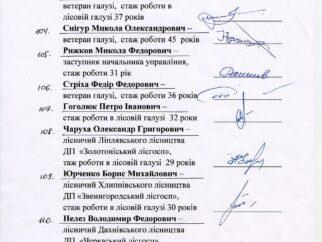 ветеран галузі, стаж роботи в
лісовій галузі 37 років
104. Снігур Микола Олександрович –
ветеран галузі, стаж роботи 45 років
105. Рижков Микола Федорович –
заступник начальника управління,
стаж роботи 31 рік
106. Стріха Федір Федорович –
ветеран галузі, стаж роботи 36 років
107. Гоголюк Петро Іванович –
стаж роботи в лісовій галузі 32 роки
108. Чаруха Олександр Григорович –
лісничий Ліплявського лісництва
ДП «Золотоніський лісгосп»,
таж роботи в лісовій галузі 29 років
109. Юрченко Борис Михайлович –
лісничий Хлипнівського лісництва
ДП «Звенигородський лісгосп»,
стаж роботи в лісовій галузі 30 років
110. Нелез Володимир Федорович –
лісничий Дахнівського лісництва
ДП «Черкаський лісгосп»